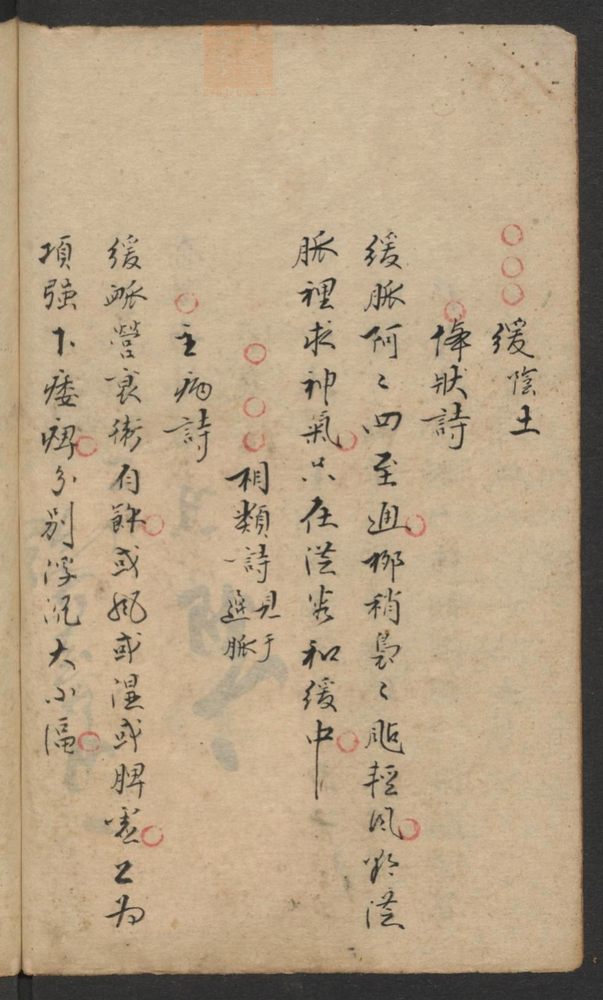 緩陰土
体狀詩
緩脈阿〻四至通柳稍裊〻颭輕風欲從
脈裡求神氣只在從容和緩中
相類詩見于遲脈
主病詩
緩脈營衰衛有餘或風或濕或脾虛上為
項強下痿痺分別浮沉大小區